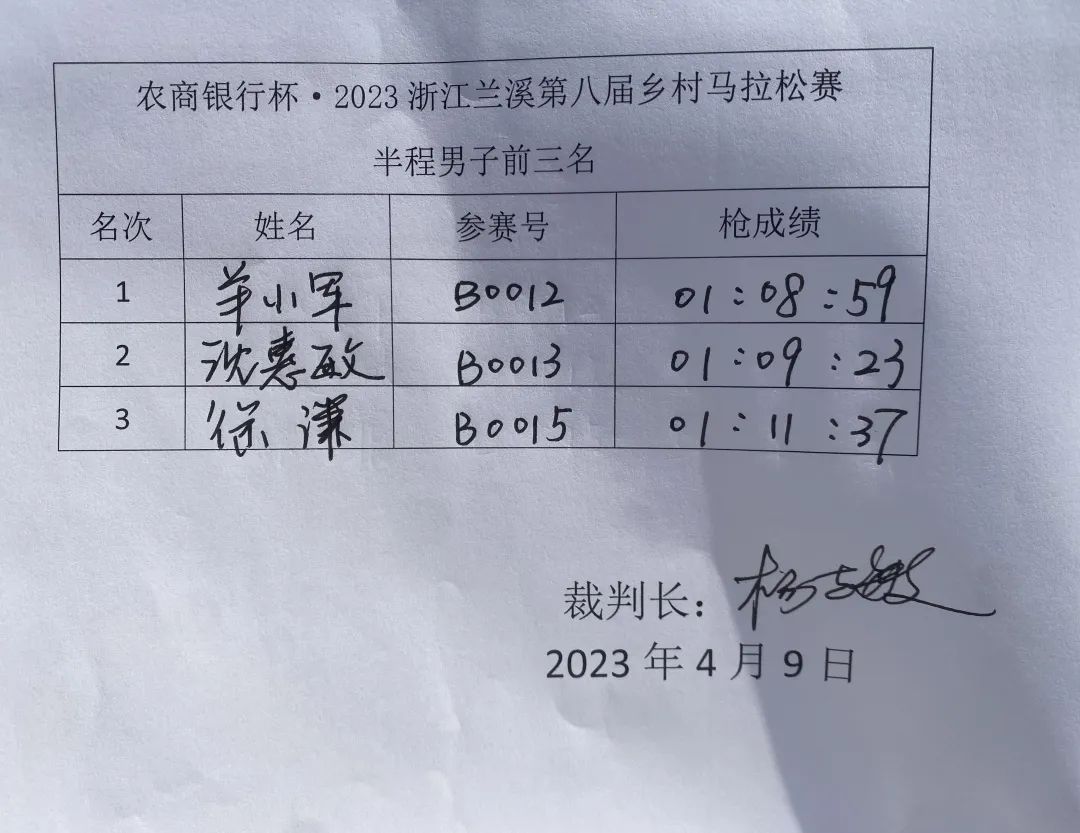 农商银行杯·2023 浙江兰溪第八届乡村马拉松赛
半程男子前三名
名次 姓名 参赛号 枪成绩
1 羊小军 B0012 01:08:59
2 沈惠敏 B0013 01:09:23
3 徐谦 B0015 01:11:37
裁判长：杨
2023 年 4 月 9 日